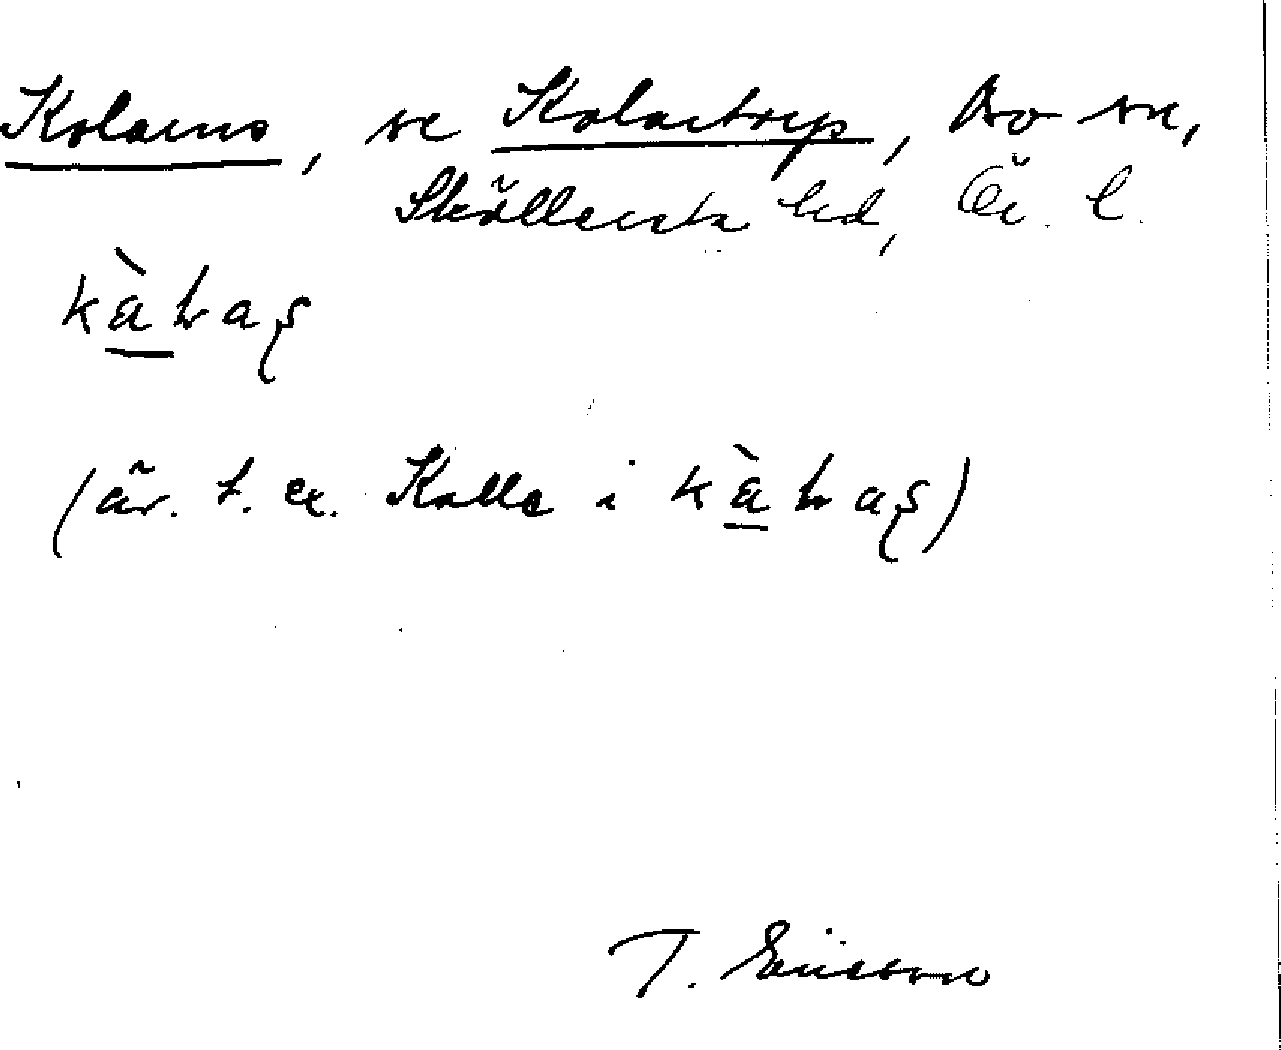 Kolarns, se Kolartorp, Bo sn,
Sköllersta hd, Ör. l.
kàɽaʂ
(äv. t. ex. Kalle i kàɽaʂ)
T. Ericsson